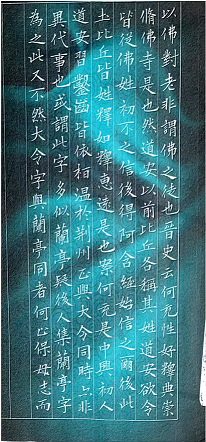 以佛對老非謂佛之徒也晉史云何充性好釋典崇
脩佛寺是也然道安以前比丘各稱其姓道安欲令
皆從佛姓初不之信後得阿含經始信之爾後此
土比丘皆姓釋如釋惠遠是也案何充是中興初人
道安習鑿齒皆依桓溫於荊州正與大令同時亦非
異代事也或謂此字多似蘭亭疑後人集蘭亭字
為之此又不然大令字與蘭亭同者何止保母志而